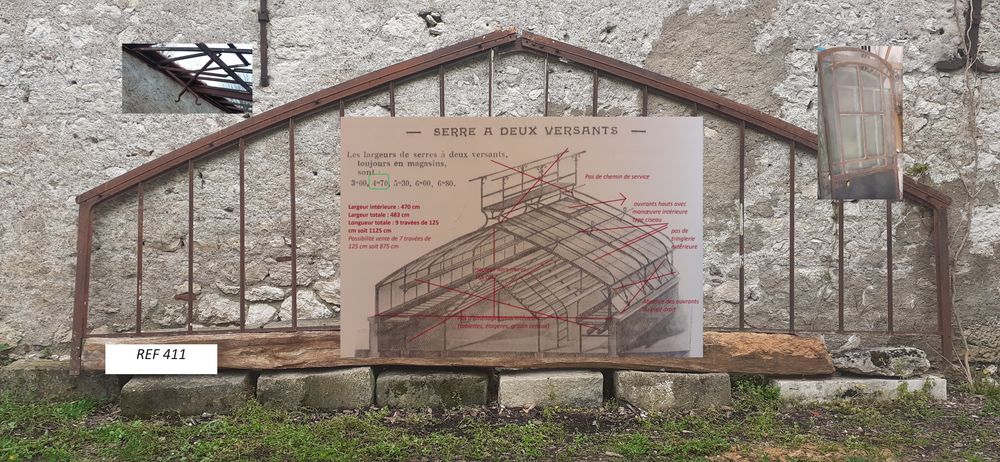 — SERRE A DEUX VERSANTS —
Les largeurs de serres à deux versants,
toujours en magasins,
sont :
3m00, 4m70, 5m30, 6m00, 6m80.
Largeur intérieure : 470 cm
Largeur totale : 483 cm
Longueur totale : 9 travées de 125
cm soit 1125 cm
Possibilité vente de 7 travées de
125 cm soit 875 cm
Pas de chemin de service
ouvrants hauts avec
manœuvre intérieure
Type ciseau
pas de
tringlerie
extérieure
Absence des ouvrants
(tablettes, étagères, gradin central)
REF 411